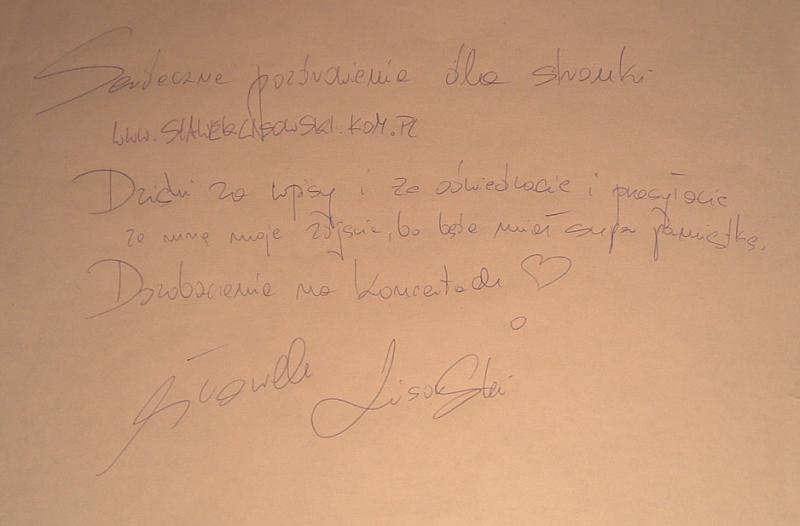 Serdeczne pozdrowienia dla stronki
www.SLAWEKLISOWSKI.KOM.PL
Dzięki za wpisy i że odwiedzacie i przesyłacie
ze mną moje zdjęcia, bo będę miał super pamiątkę.
Dozobaczenia na koncertach ♡
Sławek Lisowski